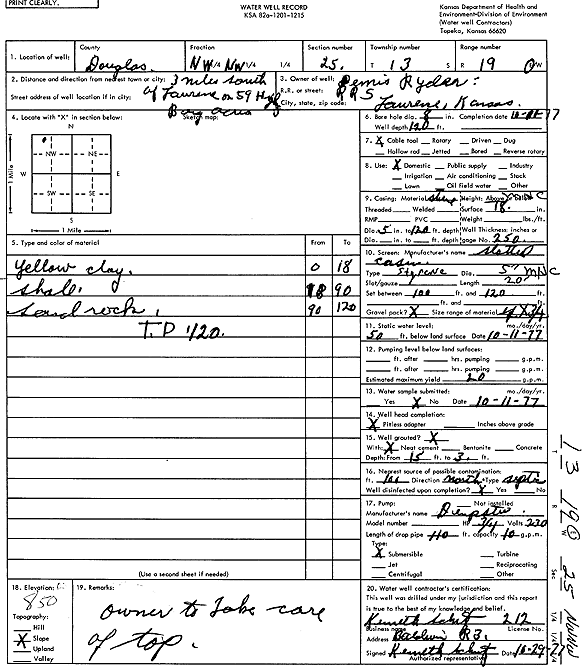 PRINT CLEARLY.
WATER WELL RECORD
KSA 82a-1201-1215
Kansas Department of Health and
Environment-Division of Environment
(Water well Contractors)
Topeka, Kansas 66620
1. Location of well:
County
Douglas
Fraction
NW 1/4 NW 1/4 1/4
Section number
25.
Township number
T 13 S
Range number
R 19 E/W
2. Distance and direction from nearest town or city: 3 miles south
Street address of well location if in city: of Laurence on 59 Hwy
3. Owner of well: Dennis Ryder
R.R. or street: RR 5
City, state, zip code: Laurence, Kansas.
4. Locate with "X" in section below:
Sketch map:
N
NW NE
W E
SW SE
S
1 Mile
1 Mile
5. Type and color of material
From To
yellow clay. 0 18
shale. 18 90
sand rock. 90 120
T.D 120.
(Use a second sheet if needed)
6. Bore hole dia. 8 in. Completion date 10-11-77
Well depth 120 ft.
7. X Cable tool Rotary Driven Dug
Hollow rod Jetted Bored Reverse rotary
8. Use: X Domestic Public supply Industry
Irrigation Air conditioning Stock
Lawn Oil field water Other
9. Casing: Material Height: Above
Threaded Welded Surface 18. in.
RMP PVC Weight lbs./ft.
Dia. 5 in. to 120 ft. depth Wall Thickness: inches or
Dia. in. to ft. depth gage No. 250.
10. Screen: Manufacturer's name slotted
Type Styrene Dia. 5"
Slot/gauze Length 20'
Set between 100 ft. and 120 ft.
ft. and ft.
Gravel pack? X Size range of material
11. Static water level: mo./day/yr.
50 ft. below land surface Date 10-11-77
12. Pumping level below land surfaces:
ft. after hrs. pumping g.p.m.
ft. after hrs. pumping g.p.m.
Estimated maximum yield 20 g.p.m.
13. Water sample submitted: mo./day/yr.
Yes X No Date 10-11-77
14. Well head completion:
X Pitless adapter Inches above grade
15. Well grouted? X
With: X Neat cement Bentonite Concrete
Depth: From 15 ft. to 3. ft.
16. Nearest source of possible contamination:
ft. 100 Direction north Type septic
Well disinfected upon completion? X Yes No
17. Pump: Not installed
Manufacturer's name Dempster
Model number HP 3/4 Volts 220
Length of drop pipe 110 ft. capacity 10 g.p.m.
Type:
X Submersible Turbine
Jet Reciprocating
Centrifugal Other
18. Elevation:
850
Topography:
Hill
X Slope
Upland
Valley
19. Remarks:
owner to take care
of top.
20. Water well contractor's certification:
This well was drilled under my jurisdiction and this report
is true to the best of my knowledge and belief.
212
Business name License No.
Address Baldwin R3.
Signed Date 10-29-77
Authorized representative
T 13 R 19 E W Sec 25 1/4 1/4 1/4